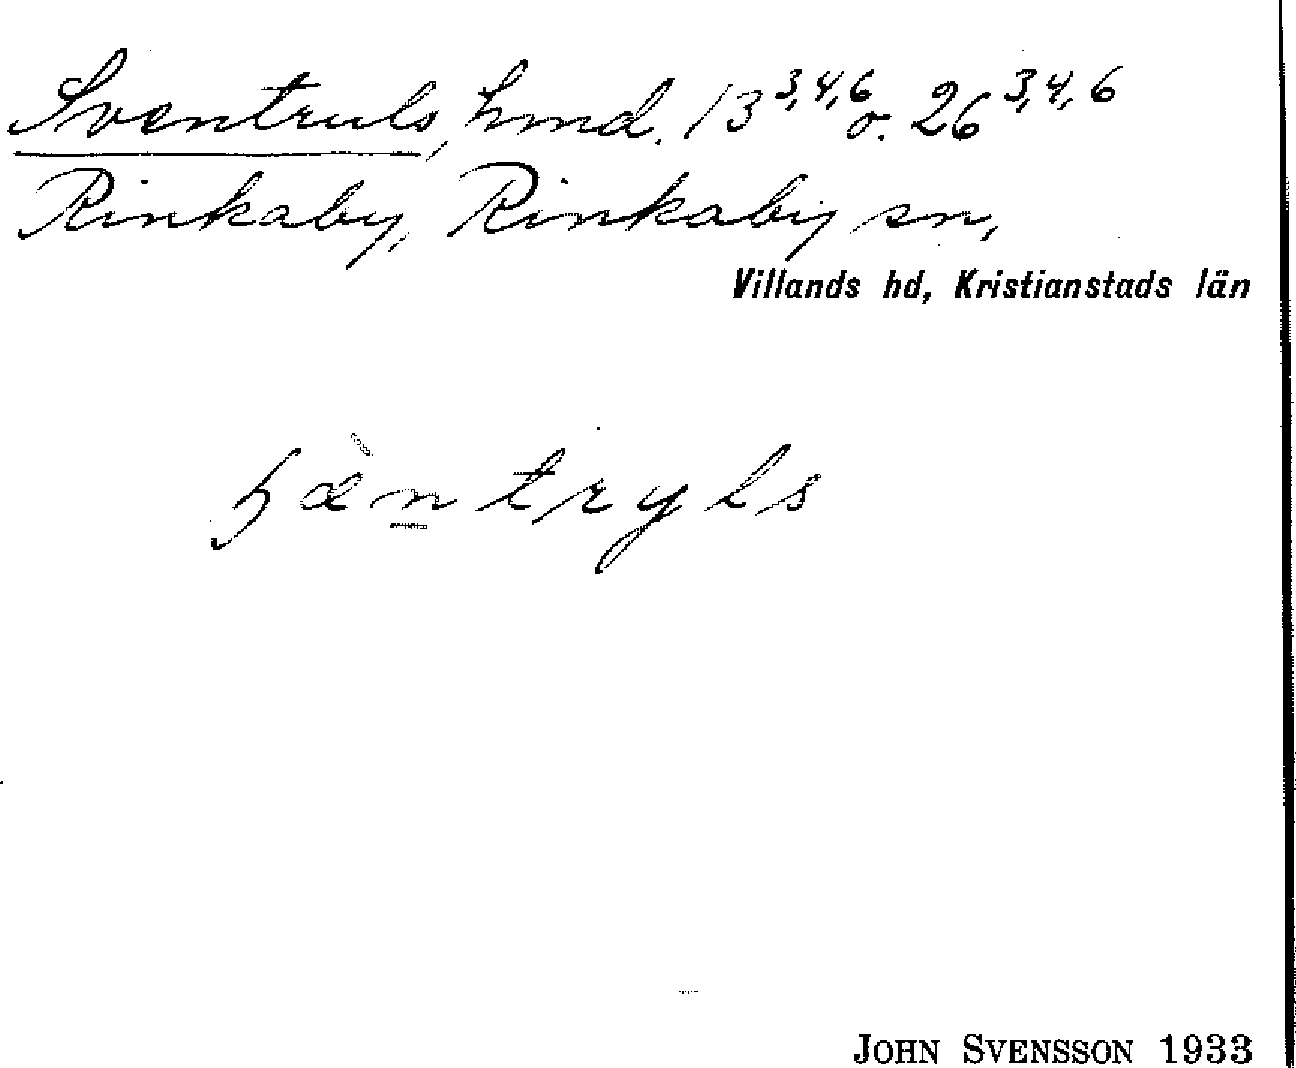 Sventruls, hmd. 13 3,4,6 o. 26 3,4,6
Rinkaby, Rinkaby sn,
Villands hd, Kristianstads län
JOHN SVENSSON 1933